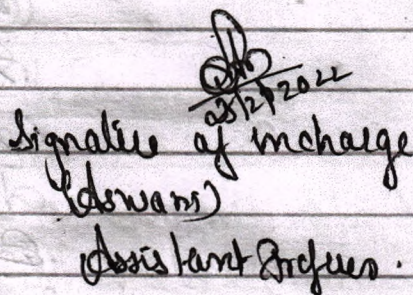 25/2/2022
Signature of incharge
(Aswani)
Assistant Profeser.